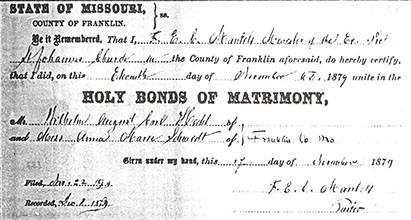 STATE OF MISSOURI,
COUNTY OF FRANKLIN. } ss.
Be it Remembered, That I, F. E. C. of the Ev.
St Johannes Church in the County of Franklin aforesaid, do hereby certify,
that I did, on this day of November A.D. 1879 unite in the
HOLY BONDS OF MATRIMONY,
Mr. Wilhelm August Carl of
and Miss Anna Maria Schmidt of } Franklin Co Mo
Given under my hand, this 17 day of November 1879
Filed, 22 1879 F. E. C.
Recorded, Dec. 8, 1879. Pastor